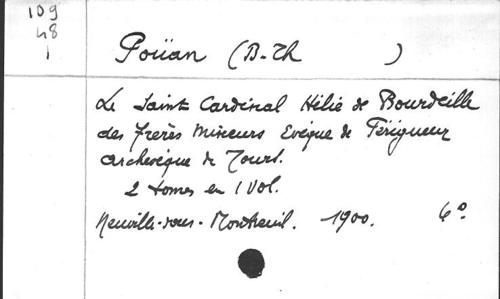 109
48
1
Poüan (B-Th )
Le Saint Cardinal Hélie de Bourdeille
des frères Mineurs Evêque de Périgueux
archevêque de Tours.
2 tomes en 1 Vol.
Neuville-sous-Montreuil. 1900. 6°